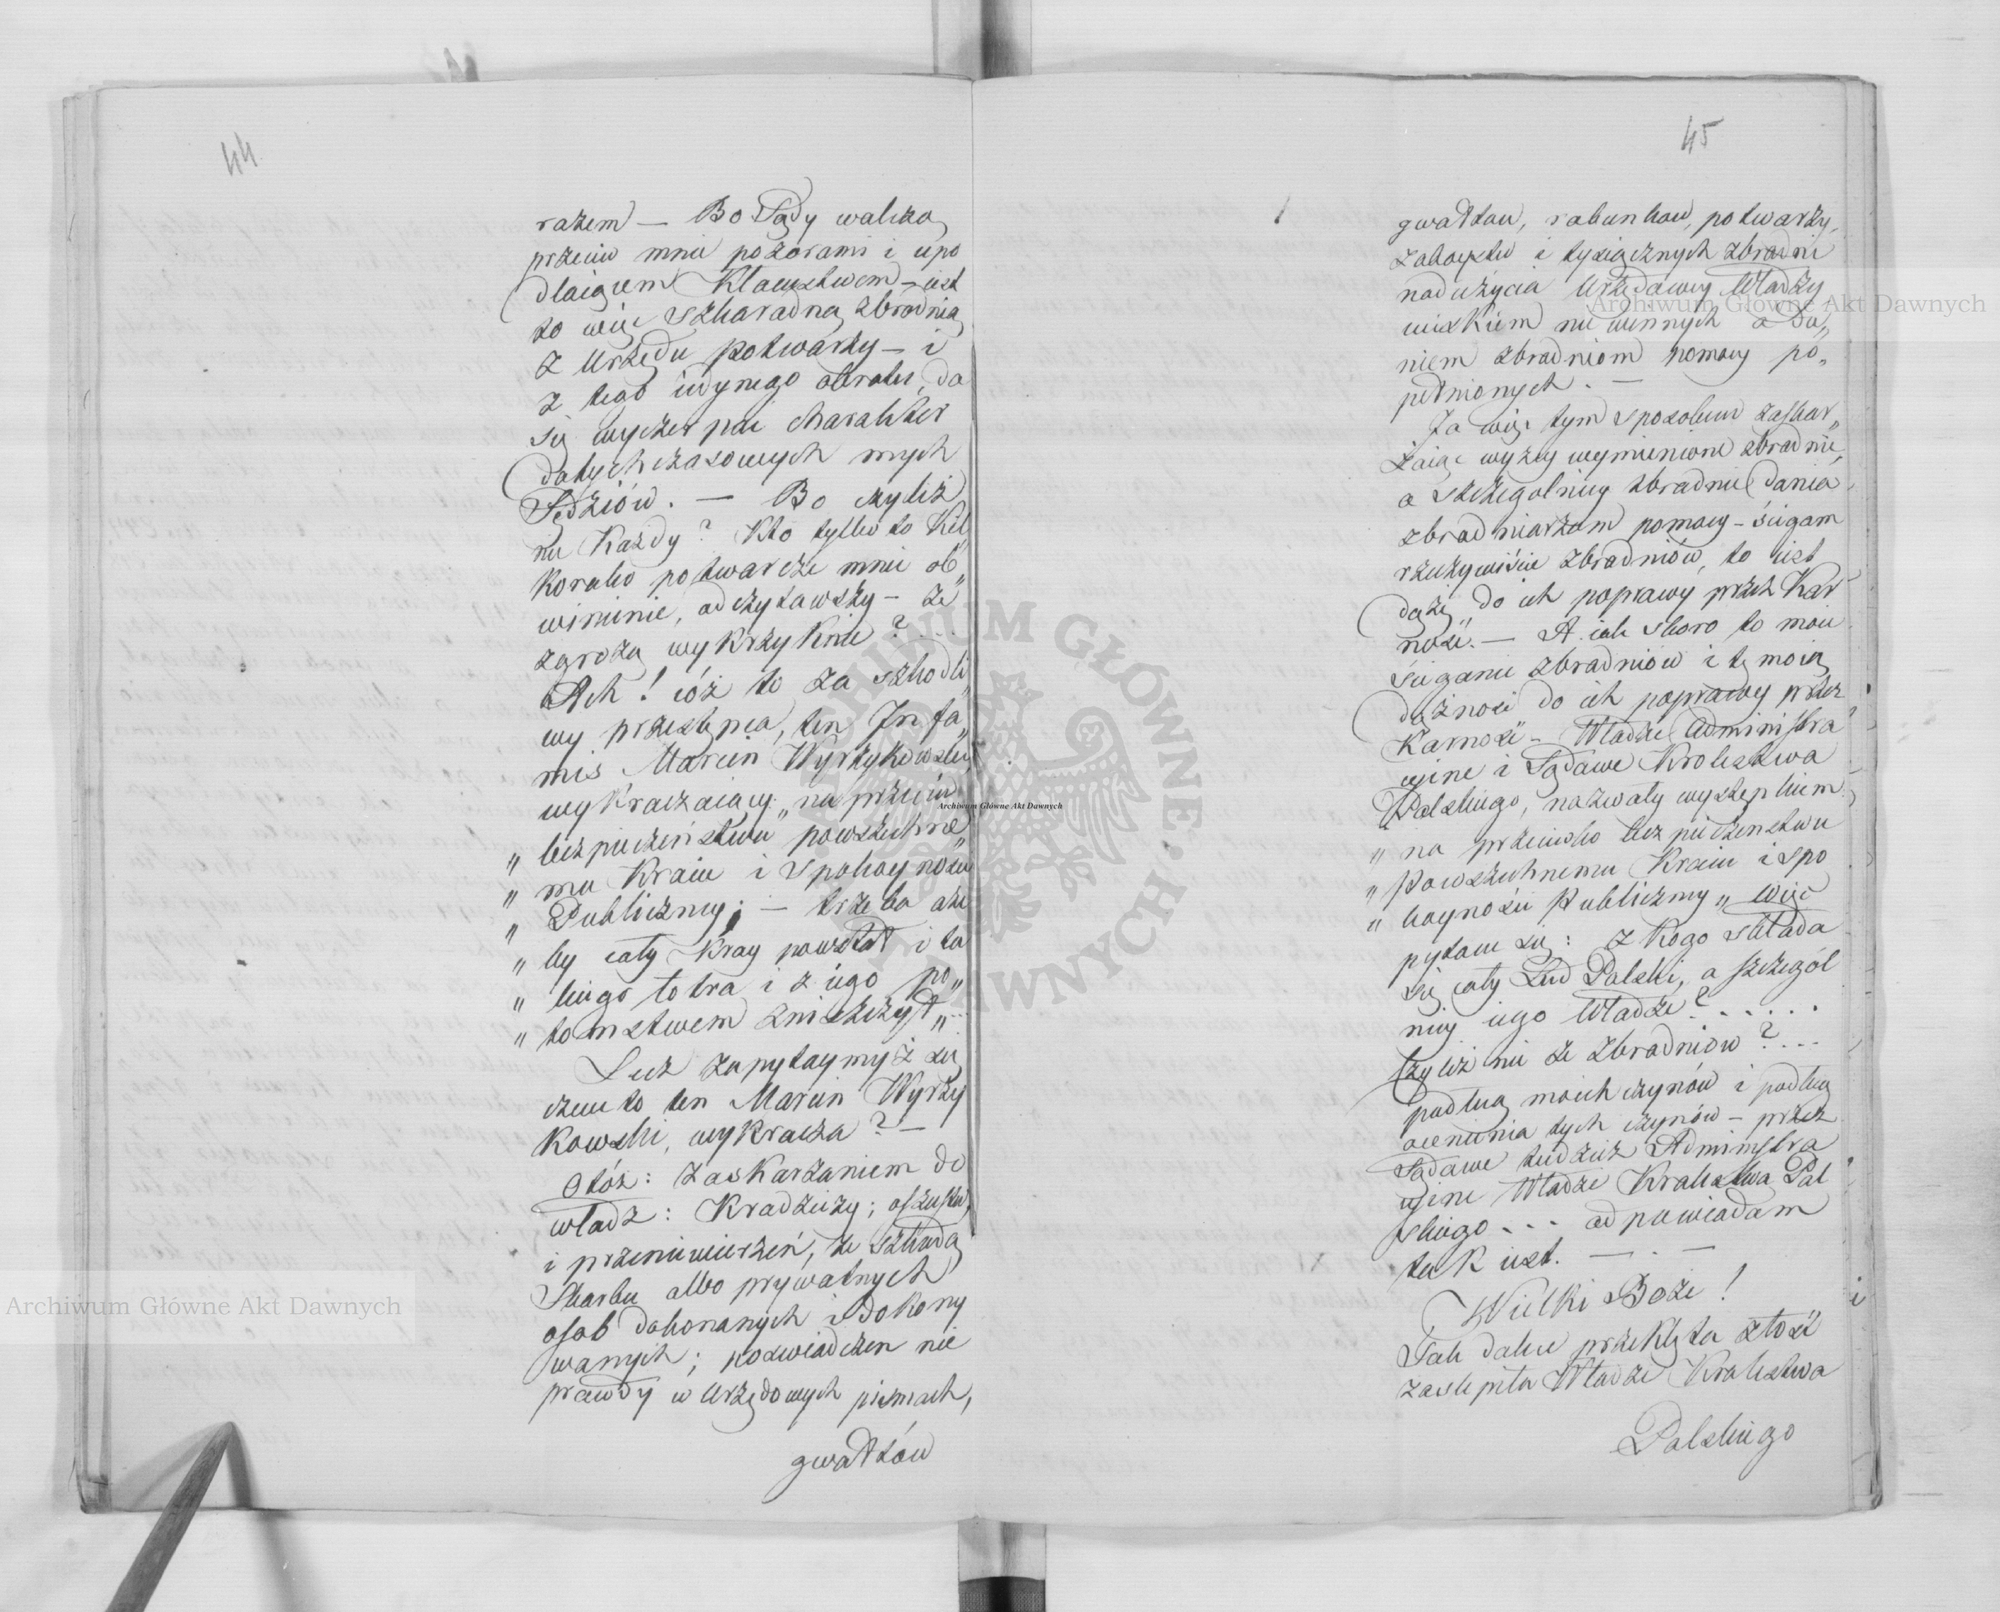 44
razem — Bo Sądy walczą
przeciw mnie pozorami i upo
dlaiącem Kłamstwem — iest
to więc szkaradną zbrodnią
z Urzędu potwarzy — i
z tego iedynego obrotu, da
się wyczerpnie charakter
dotychczasowych mych
Sędziów. — Bo czyliż
nie Każdy? Kto tylko to Kil„
Korako potwarcze mnie ob„
winienie, odczytawszy — ze
zgrozą wykrzyknie? ....
Ach! cóż to za szkodli„
wy przestępca, ten Infa„
mis Marcin Wyrzykowski,
wykraczaiący „na przeciw
„ bezpieczeństwu powszechne„
„ mu Kraiu i spokoyności
„ Publiczney; — trzeba aże
„ by cały Kray powstał i ta
„ kiego łotra i z iego po„
„ tomstwem zniszczył„...
Lecz zapytaymyż się
czem to ten Marcin Wyrzy
Kowski, wykracza? —
Otóż: zaskarżaniem do
władz: Kradzieży; oszustw,
i przeniewierzeń, ze szkodą
Skarbu albo prywatnych
osób dokonanych i dokony
wanych; poświadczeń nie
prawdy w Urzędowych pismach,
gwałtów
45
gwałtów, rabunków, potwarzy,
zabóystw i tysięcznych zbrodni
nadużycia Urzędowey Władzy
uciskiem niewinnych a da„
niem zbrodniom pomocy po„
pełnionych. —
Ja więc tym sposobem zaskar„
żaiąc wyżey wymienione zbrodnie,
a szczególniey zbrodnie dania
zbrodniarzom pomocy — ścigam
rzeczywiście zbrodniów, to iest
dążę do ich poprawy przez Kar
ność. — A iak skoro to moie
ściganie zbrodniów i tę moią
dążność do ich poprawy przez
Karność — Władze Administra
cyine i Sądowe Krolestwa
Polskiego, nazwały występkiem
„ na przeciwko bezpieczenstwu
„ Powszechnemu Kraiu i spo
„ koyności Publiczney„ Więc
pytam się: z Kogo składa
się cały Lud Polski, a szczegól
niey iego Władze? .....
Czyliż nie ze zbrodniów? ...
podług moich czynów i podług
ocenienia tych czynów — przez
Sądowe tudzież Administra
cyine Władze Krolestwa Pol
skiego --- odpowiadam
tak iest. — . —
Wielki Boże!
Tak dalece przeklęta złość
zaslepiła Władze Krolestwa
Polskiego
Archiwum Główne Akt Dawnych
Archiwum Główne Akt Dawnych
Archiwum Główne Akt Dawnych
ARCHIWUM GŁÓWNE AKT DAWNYCH